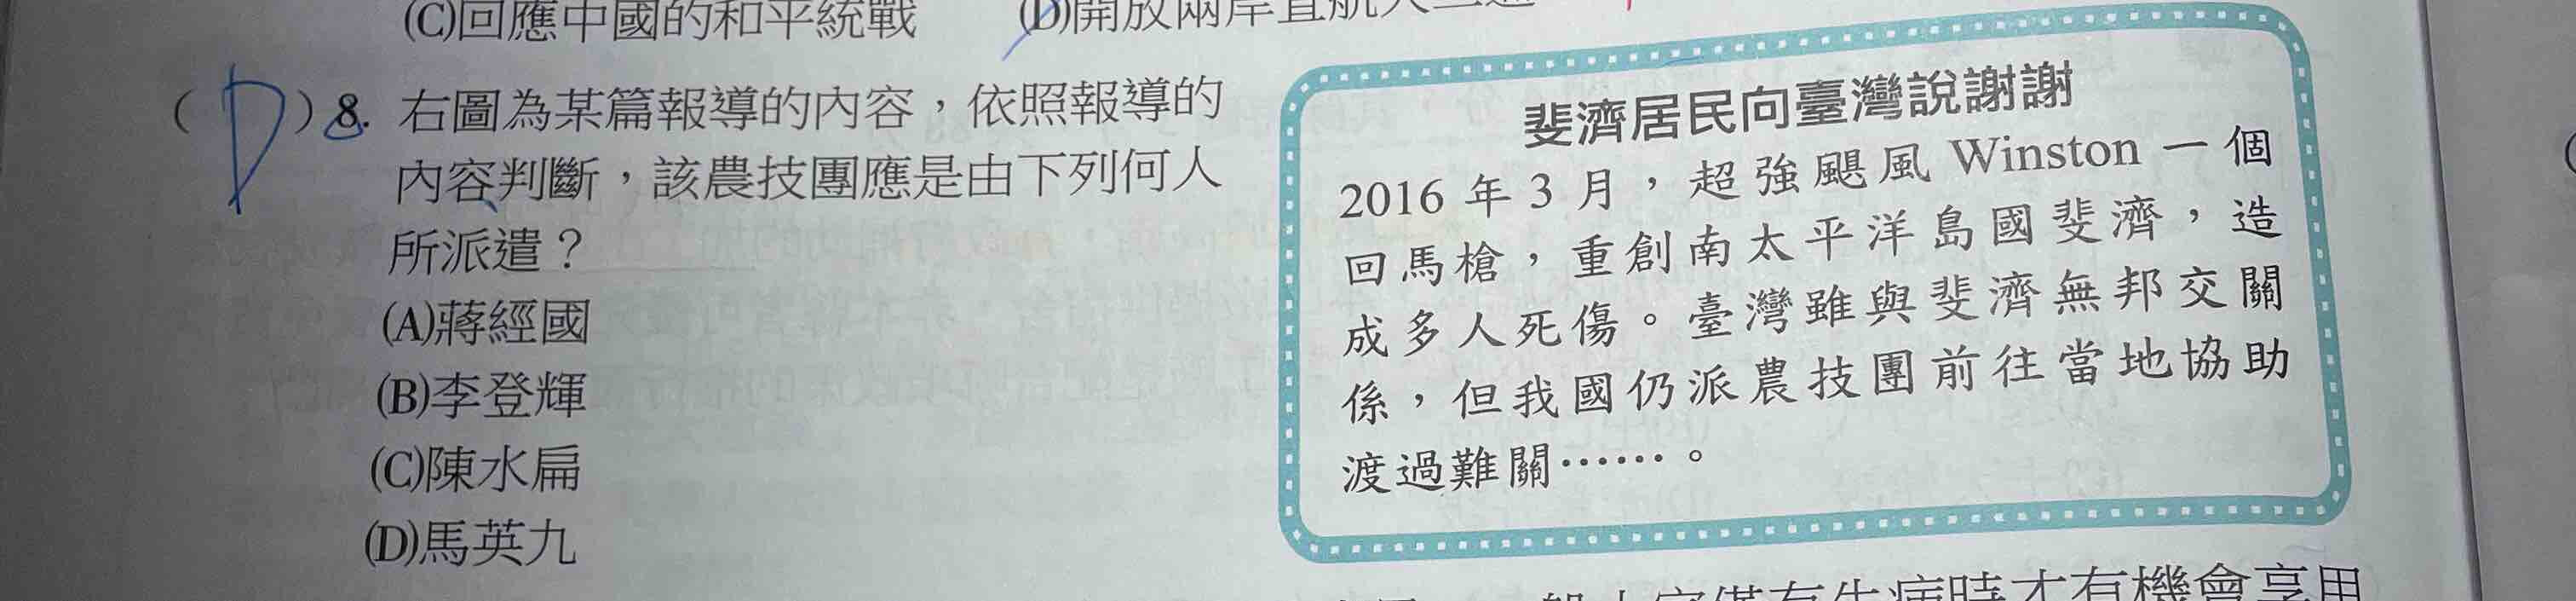 (C)回應中國的和平統戰 (D)開放兩岸直航大三通
(D)8. 右圖為某篇報導的內容，依照報導的
內容判斷，該農技團應是由下列何人
所派遣？
(A)蔣經國
(B)李登輝
(C)陳水扁
(D)馬英九
斐濟居民向臺灣說謝謝
2016 年 3 月，超強颶風 Winston 一個
回馬槍，重創南太平洋島國斐濟，造
成多人死傷。臺灣雖與斐濟無邦交關
係，但我國仍派農技團前往當地協助
渡過難關……。
有生病時才有機會享用